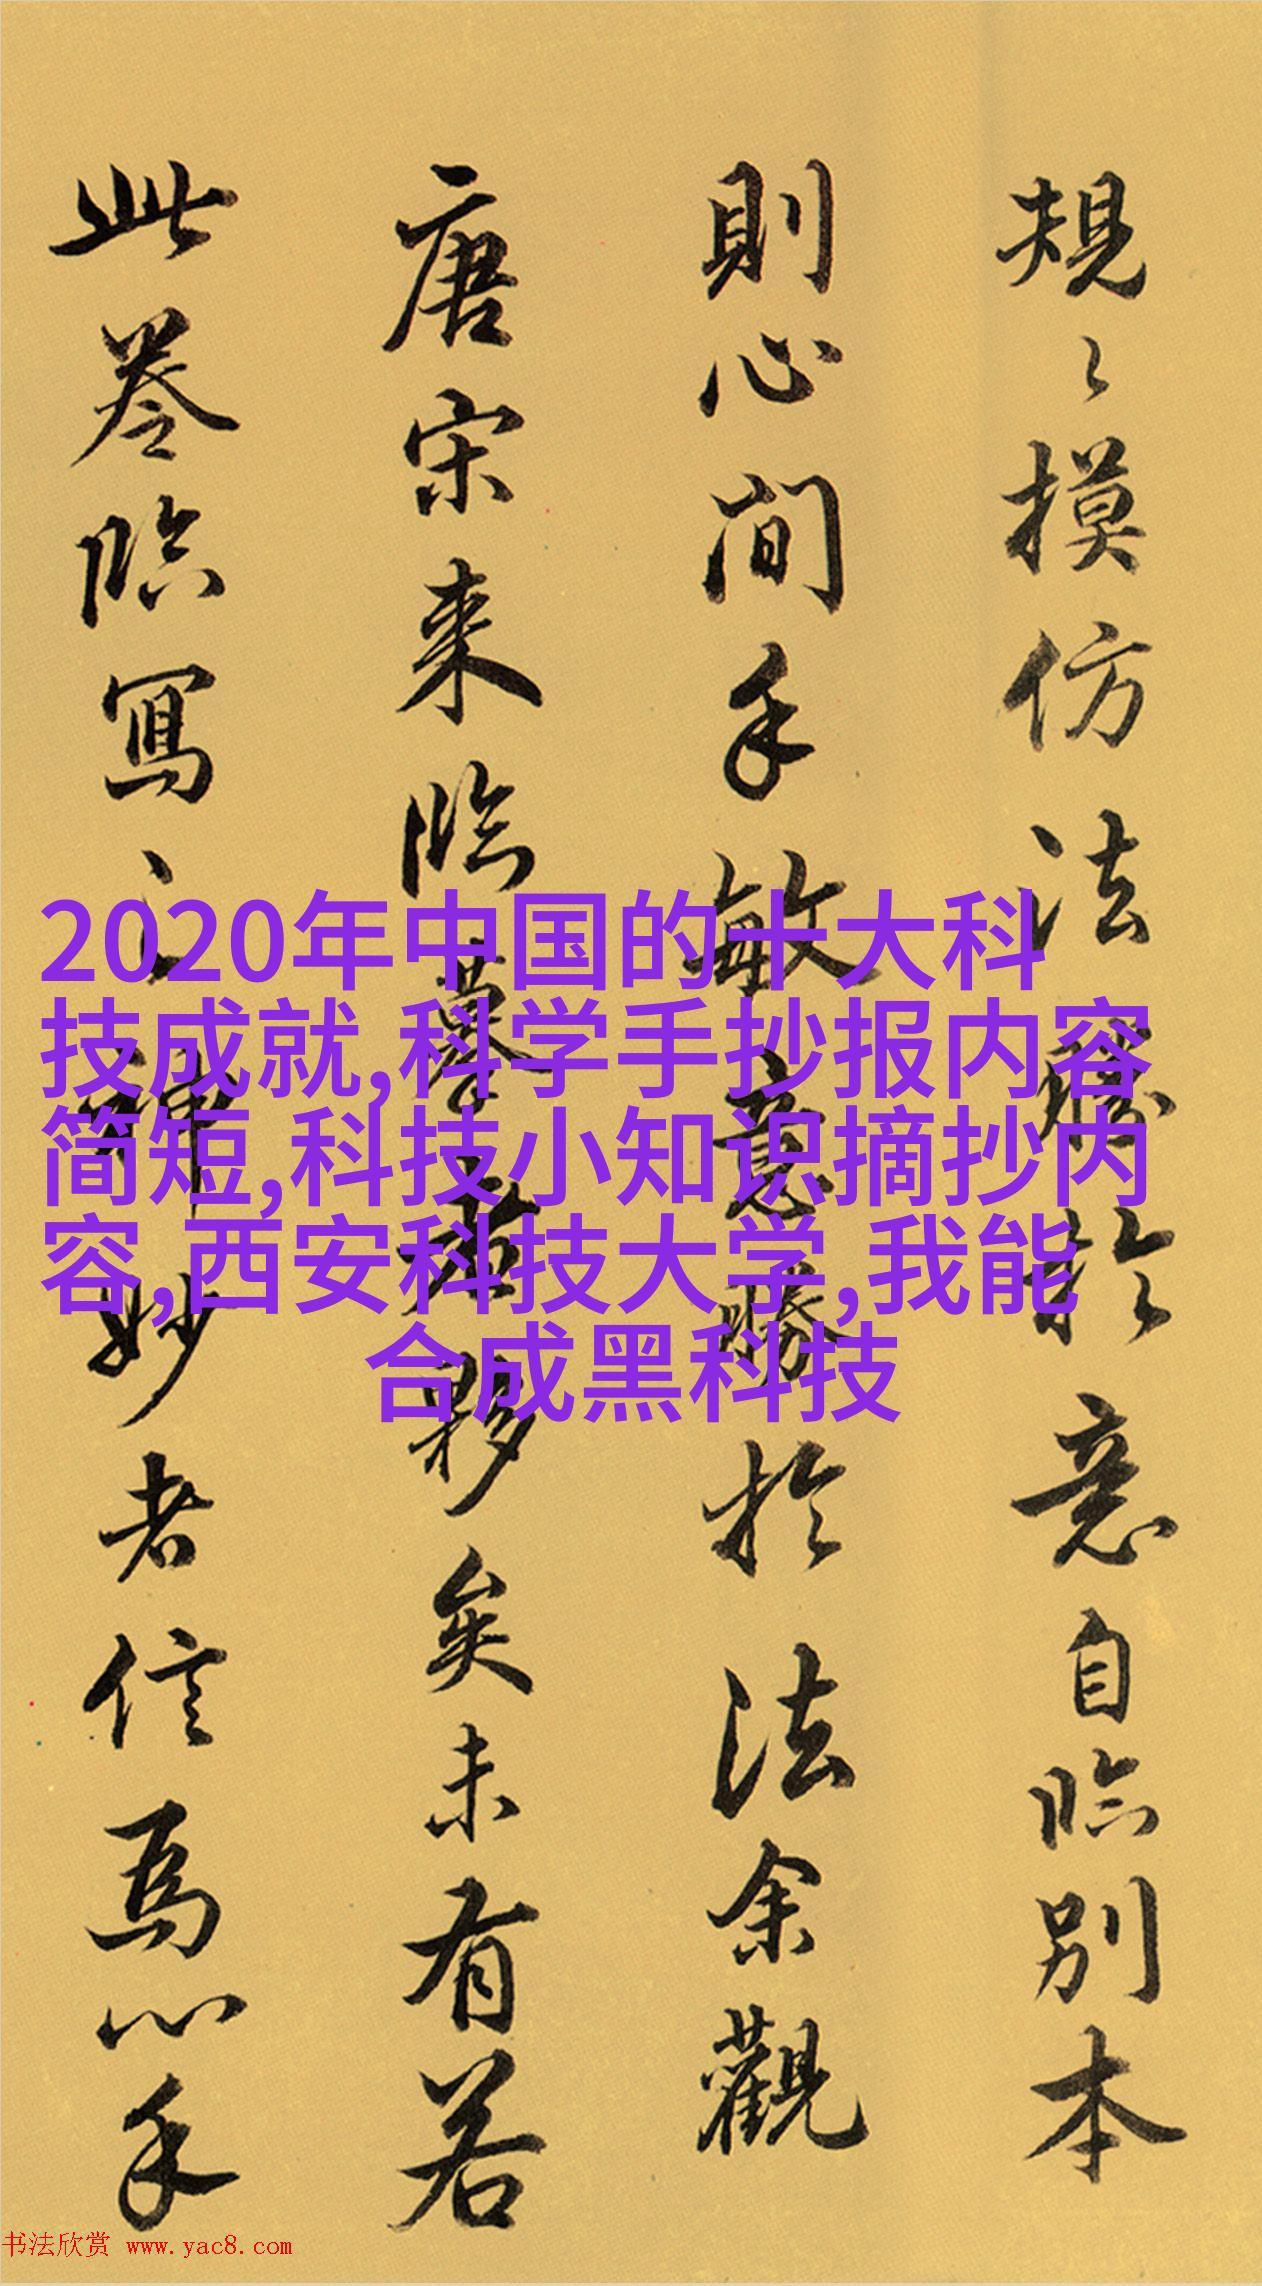 規〻摸仿法勝於意自臨別本
則心閒手敏意勝於法余觀
唐宋來臨摹蘭亭夥矣未有若
此卷臨寫之神妙者信焉心手
2020年中国的十大科
技成就,科学手抄报内容
简短,科技小知识摘抄内
容,西安科技大学,我能
合成黑科技
书法欣赏 www.yac8.com